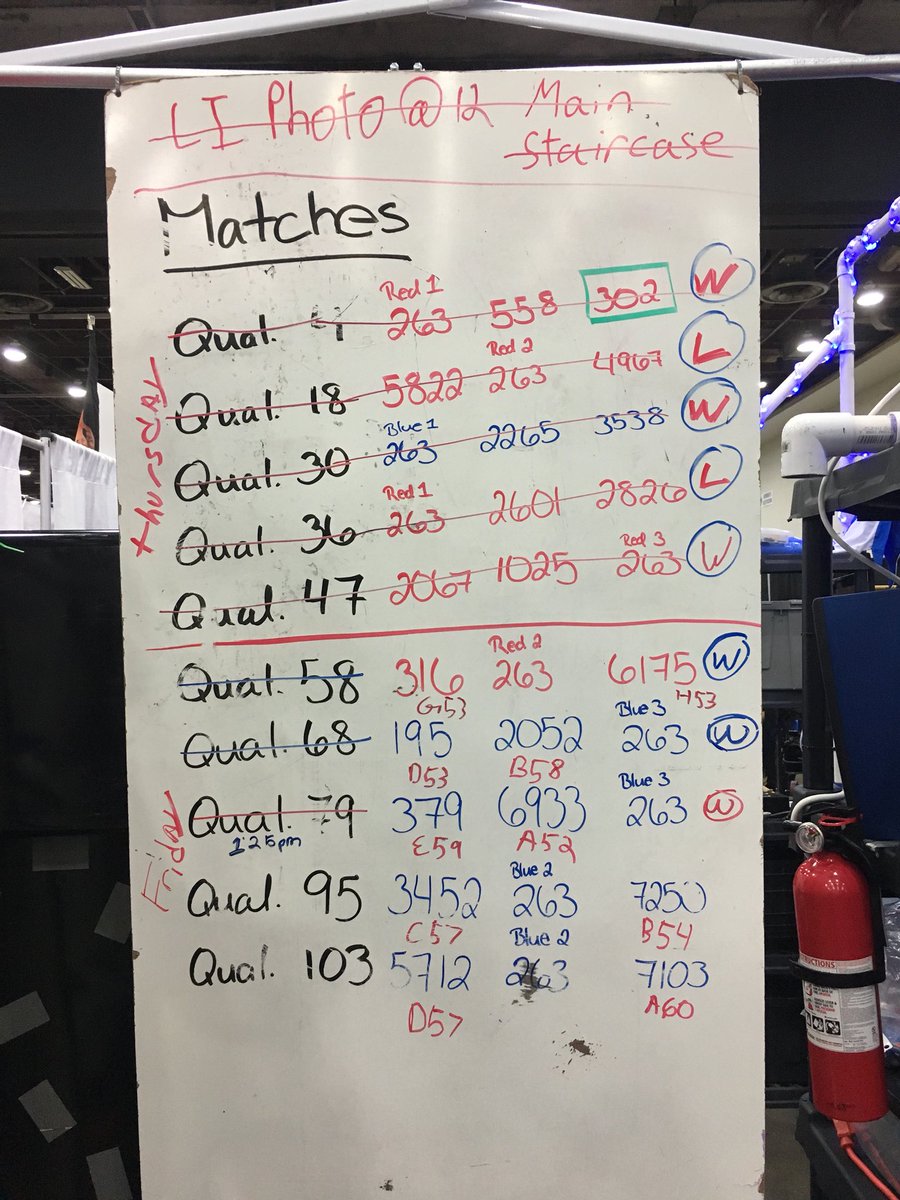 LI Photo @ 12 Main
Staircase
Matches
Red 1
Qual. 4 263 558 302 W
Red 2
Qual. 18 5822 263 4967 L
Blue 1
Qual. 30 263 2265 3538 W
Red 1
Qual. 36 263 2601 2826 L
Red 3
Qual. 47 2067 1025 263 W
thursday
Red 2
Qual. 58 316 263 6175 W
G53 H53
Blue 3
Qual. 68 195 2052 263 W
D53 B58
Blue 3
Qual. 79 379 6933 263 W
1:25pm E59 A52
Friday
Blue 2
Qual. 95 3452 263 7250
C57 B54
Blue 2
Qual. 103 5712 263 7103
D57 A60